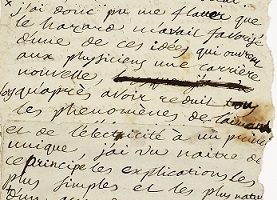 j'ai donc pu me flatter que
le hazard m'avait favorisé
d'une de ces idées qui ouvrent
aux physiciens une carrière
nouvelle
qu'après avoir reduit tous
les phenomenes de l'aimant
et de l'électricité à un principe
unique j'ai vu naitre de
ce principe les explications les
plus simples et les plus